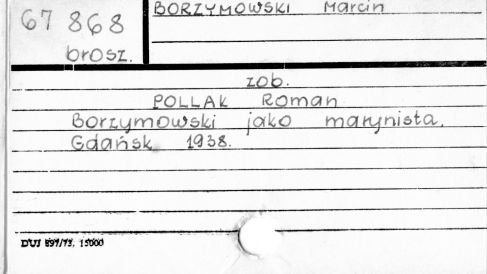 67 868
brosz.
BORZYMOWSKI Marcin
zob.
POLLAK Roman
Borzymowski jako marynista.
Gdańsk 1938.
DUJ 897/73. 15000